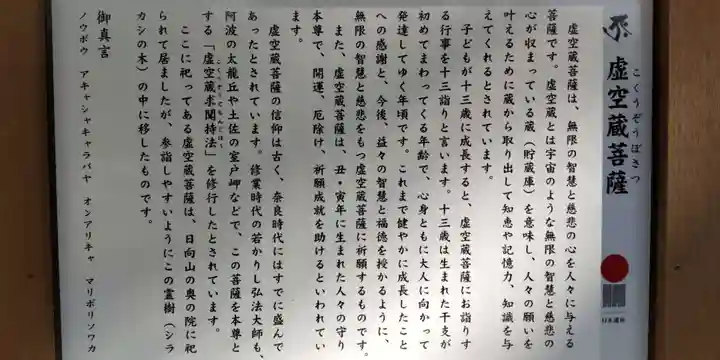 虚空蔵菩薩
こくうぞうぼさつ
日本遺産
虚空蔵菩薩は、無限の智慧と慈悲の心を人々に与える
菩薩です。虚空蔵とは宇宙のような無限の智慧と慈悲の
心が収まっている蔵（貯蔵庫）を意味し、人々の願いを
叶えるために蔵から取り出して知恵や記憶力、知識を与
えてくれるとされています。
子どもが十三歳に成長すると、虚空蔵菩薩にお詣りす
る行事を十三詣りと言います。十三歳は生まれた干支が
初めてまわってくる年齢で、心身ともに大人に向かって
発達してゆく年頃です。これまで健やかに成長したこと
への感謝と、今後、益々の智慧と福徳を授かるように、
無限の智慧と慈悲をもつ虚空蔵菩薩に祈願するものです。
また、虚空蔵菩薩は、丑・寅年に生まれた人々の守り
本尊で、開運、厄除け、祈願成就を助けるといわれてい
ます。
虚空蔵菩薩の信仰は古く、奈良時代にはすでに盛んで
あったとされています。修業時代の若かりし弘法大師も、
阿波の太龍丘や土佐の室戸岬などで、この菩薩を本尊と
する「虚空蔵求聞持法」を修行したとされています。
こくうぞうぐもんじほう
ここに祀ってある虚空蔵菩薩は、日向山の奥の院に祀
られて居ましたが、参詣しやすいようにこの霊樹（シラ
カシの木）の中に移したものです。
御真言
ノウボウ アキャシャキャラバヤ オンアリキャ マリボリソワカ